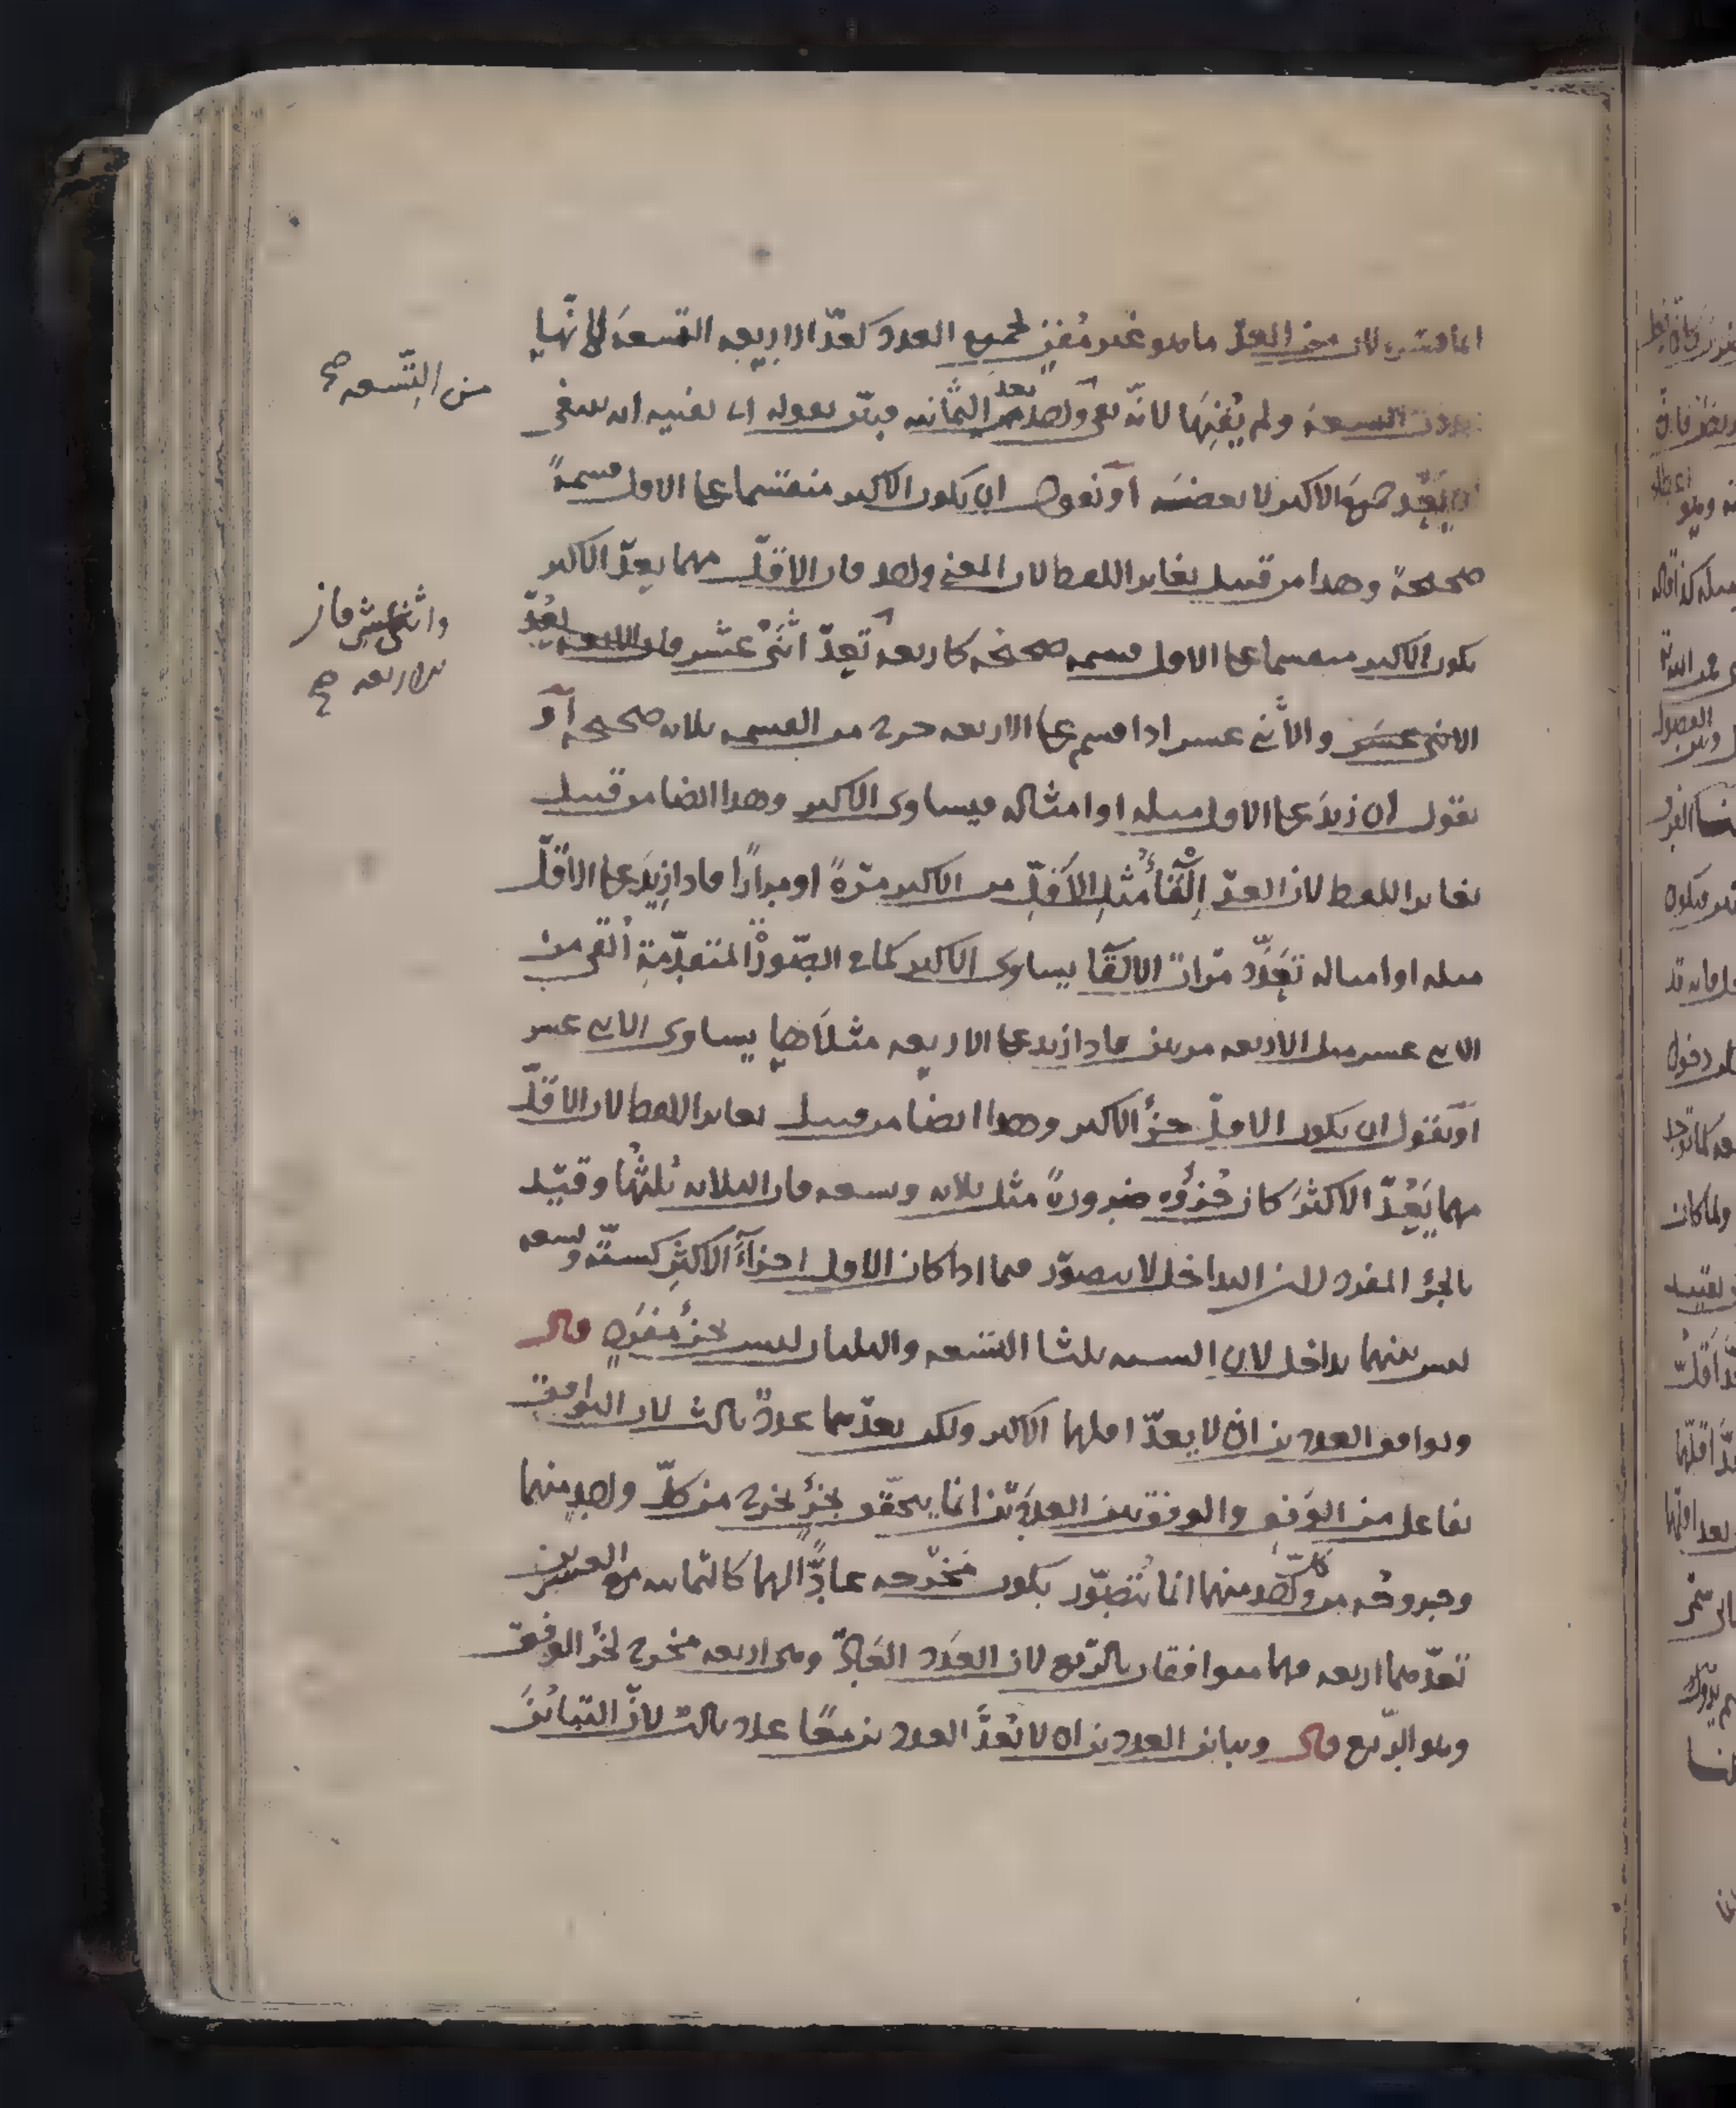 انما فسّر لان من العدّ ما هو غير مُفنٍ لجميع العدد كعدّ الاربعه التسعةَ لانّها
تعدّ من التسعة ولم يُفنِها لانّه بقى واحد بعد الثمانيه فبيّن بقوله اى يفنيه انه ينبغى
ان يَعُدّ جميعَ الاكبر لا بعضَه أو نقول ان يكون الاكبر منقسما على الاقل قسمةً
صحيحةً وهذا من قبيل تغاير اللفظ لان المعنى واحد فان الاقلّ مهما يعدّ الاكبر
يكون الاكبر منقسما على الاقل قسمه صحيحه كاربعه تعدّ اثنى عشر فان الاربعه يعُدّ
الاثنى عشر والاثنى عشر اذا قسم على الاربعه خرج من القسمه ثلاثه صحيحه أو
نقول ان زيدَ على الاقل مثله او امثاله فيساوى الاكبر وهذا ايضا من قبيل
تغاير اللفظ لان العدّ إلقاءُ مثلِ الاقلّ من الاكبر مرّةً او مرارًا فاذا زِيدَ على الاقلّ
مثله او امثاله تعدّد مرّات الالقا يساوى الاكبر كما فى الصّورة المتقدّمةِ اُلقى من
الاثنى عشر مثل الاربعه مرتين فاذا زيد على الاربعه مثلاها يساوى الاثنى عشر
أو نقول ان يكون الاقلّ جزأ الاكبر وهذا ايضا من قبيل تغاير اللفظ لان الاقلّ
مهما يَعُدّ الاكثرَ كان جُزؤُه ضرورةً مثل ثلاثه وتسعه فان الثلاثه ثُلثُها وقيّد
بالجزء المفرد لان التداخل لا يتصوّر فيما اذا كان الاقل اجزآءَ الاكثر كستّه وتسعه
ليس بينهما تداخل لان الستّه ثلثا التسعه والثلثان ليس بجزءٍ مفردٍ قال
وتوافق العددين ان لا يعدّ اقلهما الاكبر ولكن يعدّهما عددٌ ثالث لان التوافق
تفاعل من الوفق والوفق بين العددين انما يتحقّق بجزءٍ يخرج من كلّ واحد منهما
وخروجُه من كلّ واحد منهما انما يُتصوّر بكون مَخرَجه عادًّا لهما كالثمانيه مع العشرين
تعدّهما اربعه فهما متوافقان بالرّبع لان العدد العادّ وهى اربعه مخرج لجزء الوفق
وهو الرّبع قال وتباين العددين ان لا يَعُدّ العددين معًا عدد ثالث لانّ التبايُنَ
من التّسعه صح
واثنى عشر فان
الاربعه صح